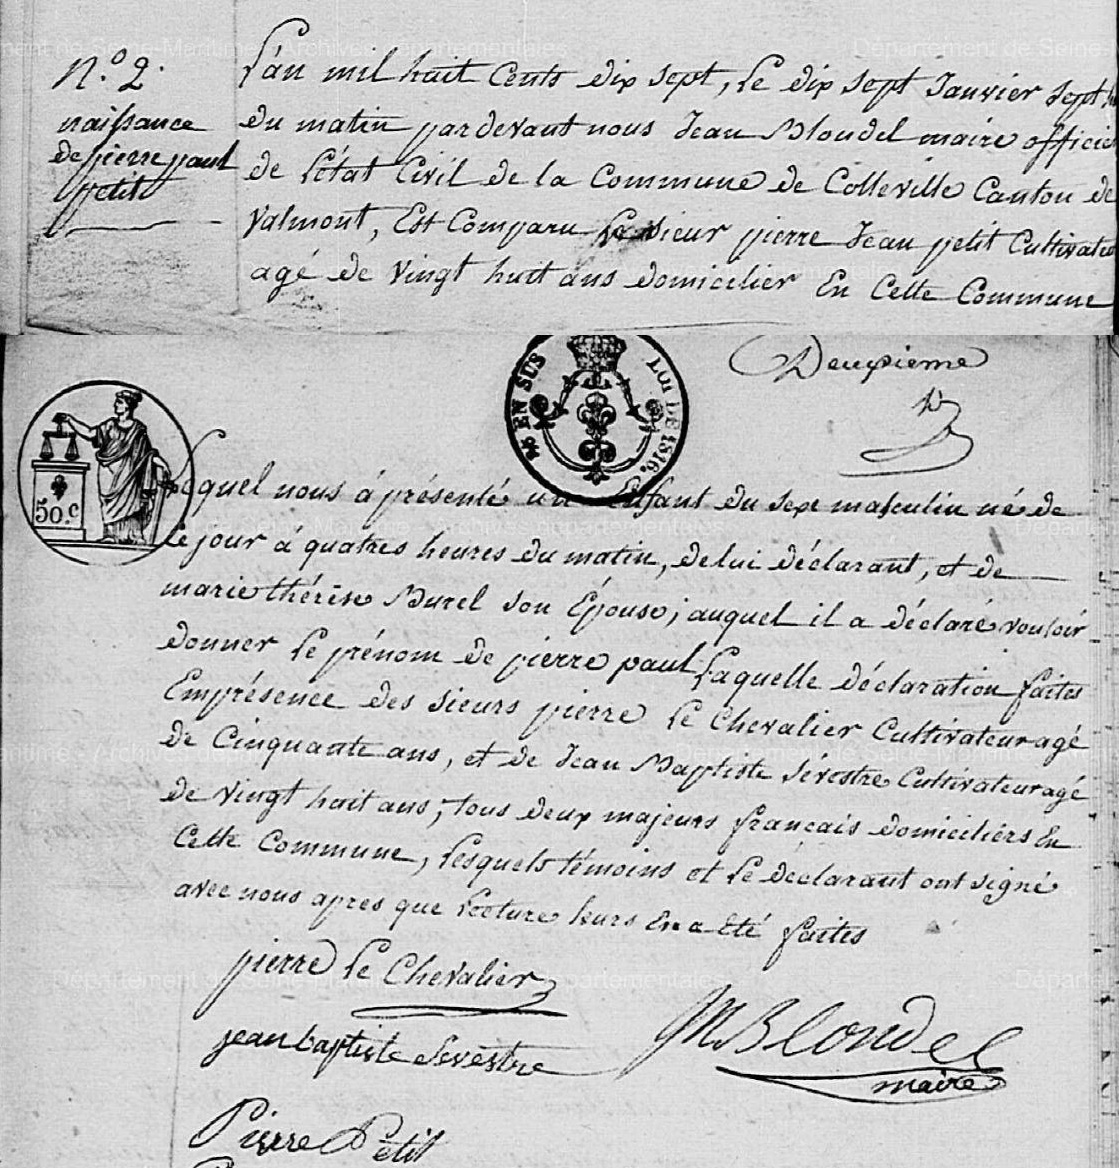 N.o 2.
naissance
de pierre paul
petit
L'an mil huit Cents dix sept, Le dix sept Janvier sept
du matin pardevant nous Jean Blondel maire officie
de L'état Civil de la Commune de Colleville Canton de
Valmont, Est Comparu Le sieur pierre Jean petit Cultivateu
agé de vingt huit ans domicilier En Cette Commune
Deuxieme
EN SUS
LOI DE 1816.
50.c
Lequel nous á présenté un Enfant du sexe masculin né de
ce jour á quatres heures du matin, de lui déclarant, et de
marie thérèse Burel son Epouse, auquel il a déclaré vouloir
donner Le prénom de pierre paul Laquelle déclaration faites
Emprésence des sieurs pierre Le Chevalier Cultivateur agé
de Cinquante ans, et de Jean Baptiste Sévestre Cultivateur agé
de vingt huit ans, tous deux majeurs francais domiciliérs En
Cette Commune, Lesquels témoins et Le declarant ont signé
avec nous apres que Lecture leurs En a été faites
pierre Le Chevalier
jean baptiste Sevestre
JM Blondel
maire
Pierre Petit
Département de Seine-Maritime - Archives départementales